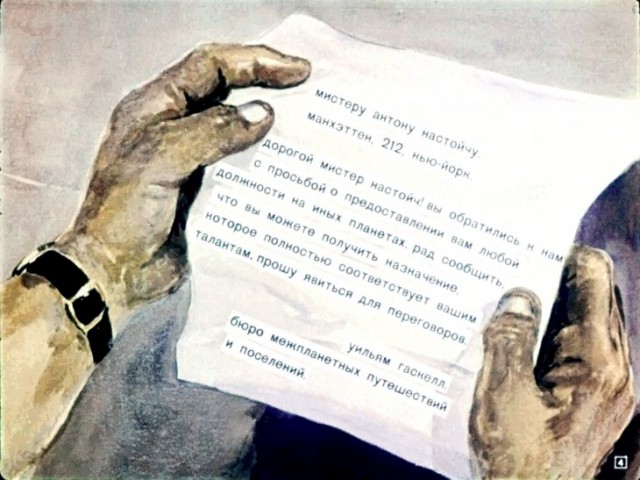 мистеру антону настойчу,
манхэттен, 212, нью-йорк.
дорогой мистер настойч! вы обратились к нам
с просьбой о предоставлении вам любой
должности на иных планетах. рад сообщить,
что вы можете получить назначение,
которое полностью соответствует вашим
талантам. прошу явиться для переговоров.
уильям гаскелл.
бюро межпланетных путешествий
и поселений.
4